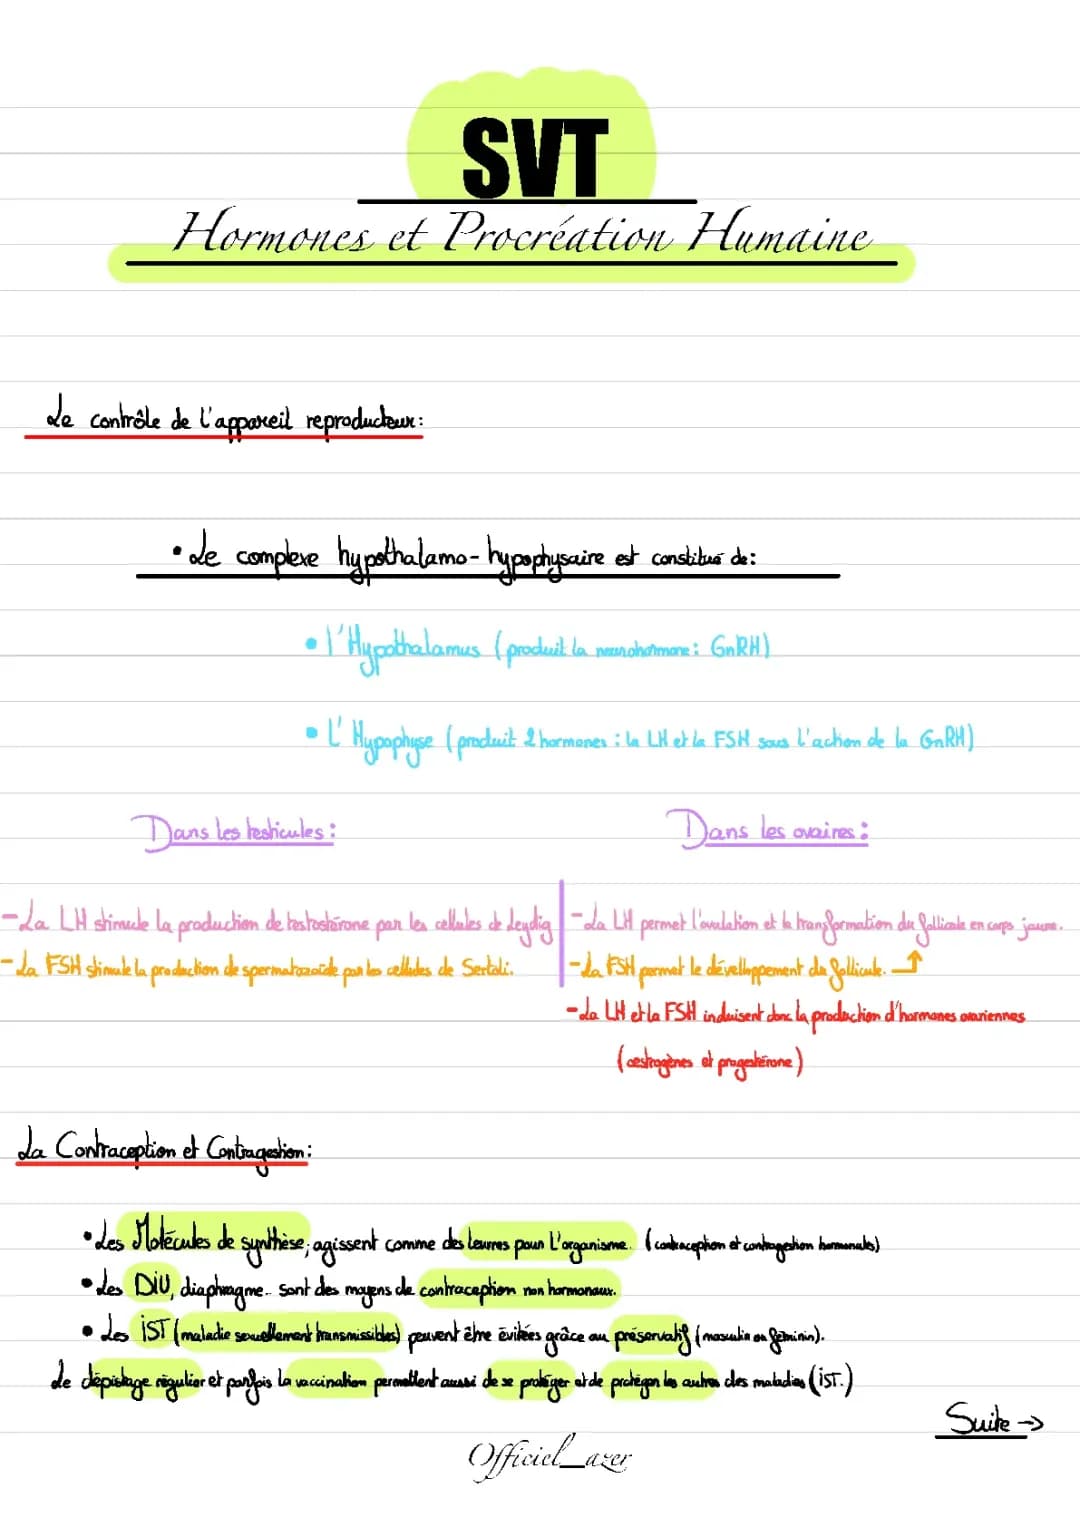 SVT
Hormones et Procréation Humaine
Le contrôle de l'appareil reproducteur:
• Le complexe hypothalamo-hypophysaire est constitué de:
• l'Hypothalamus (produit la neurohormone: GnRH)
• L'Hypophyse (produit 2 hormones : la LH et la FSH sous l'action de la GnRH)
Dans les testicules :
-La LH stimule la production de testostérone par les cellules de Leydig
-La FSH stimule la production de spermatozoïde par les cellules de Sertoli.
Dans les ovaires :
-La LH permet l'ovulation et la transformation du follicule en corps jaune.
-La FSH permet le dévellopement du follicule.
-La LH et la FSH induisent donc la production d'hormones ovariennes
(œstrogènes et progestérone)
La Contraception et Contragestion:
• Les Molécules de synthèse, agissent comme des leurres pour l'organisme. (contraception et contragestion hormonales)
• Les DiU, diaphragme.. sont des moyens de contraception non hormonaux.
• Les iST (maladie sexuellement transmissibles) peuvent être évitées grâce au préservatif (masculin ou féminin).
Le dépistage régulier et parfois la vaccination permettent aussi de se protéger et de protéger les autres des maladies (iST.)
Suite →
Officiel_azer